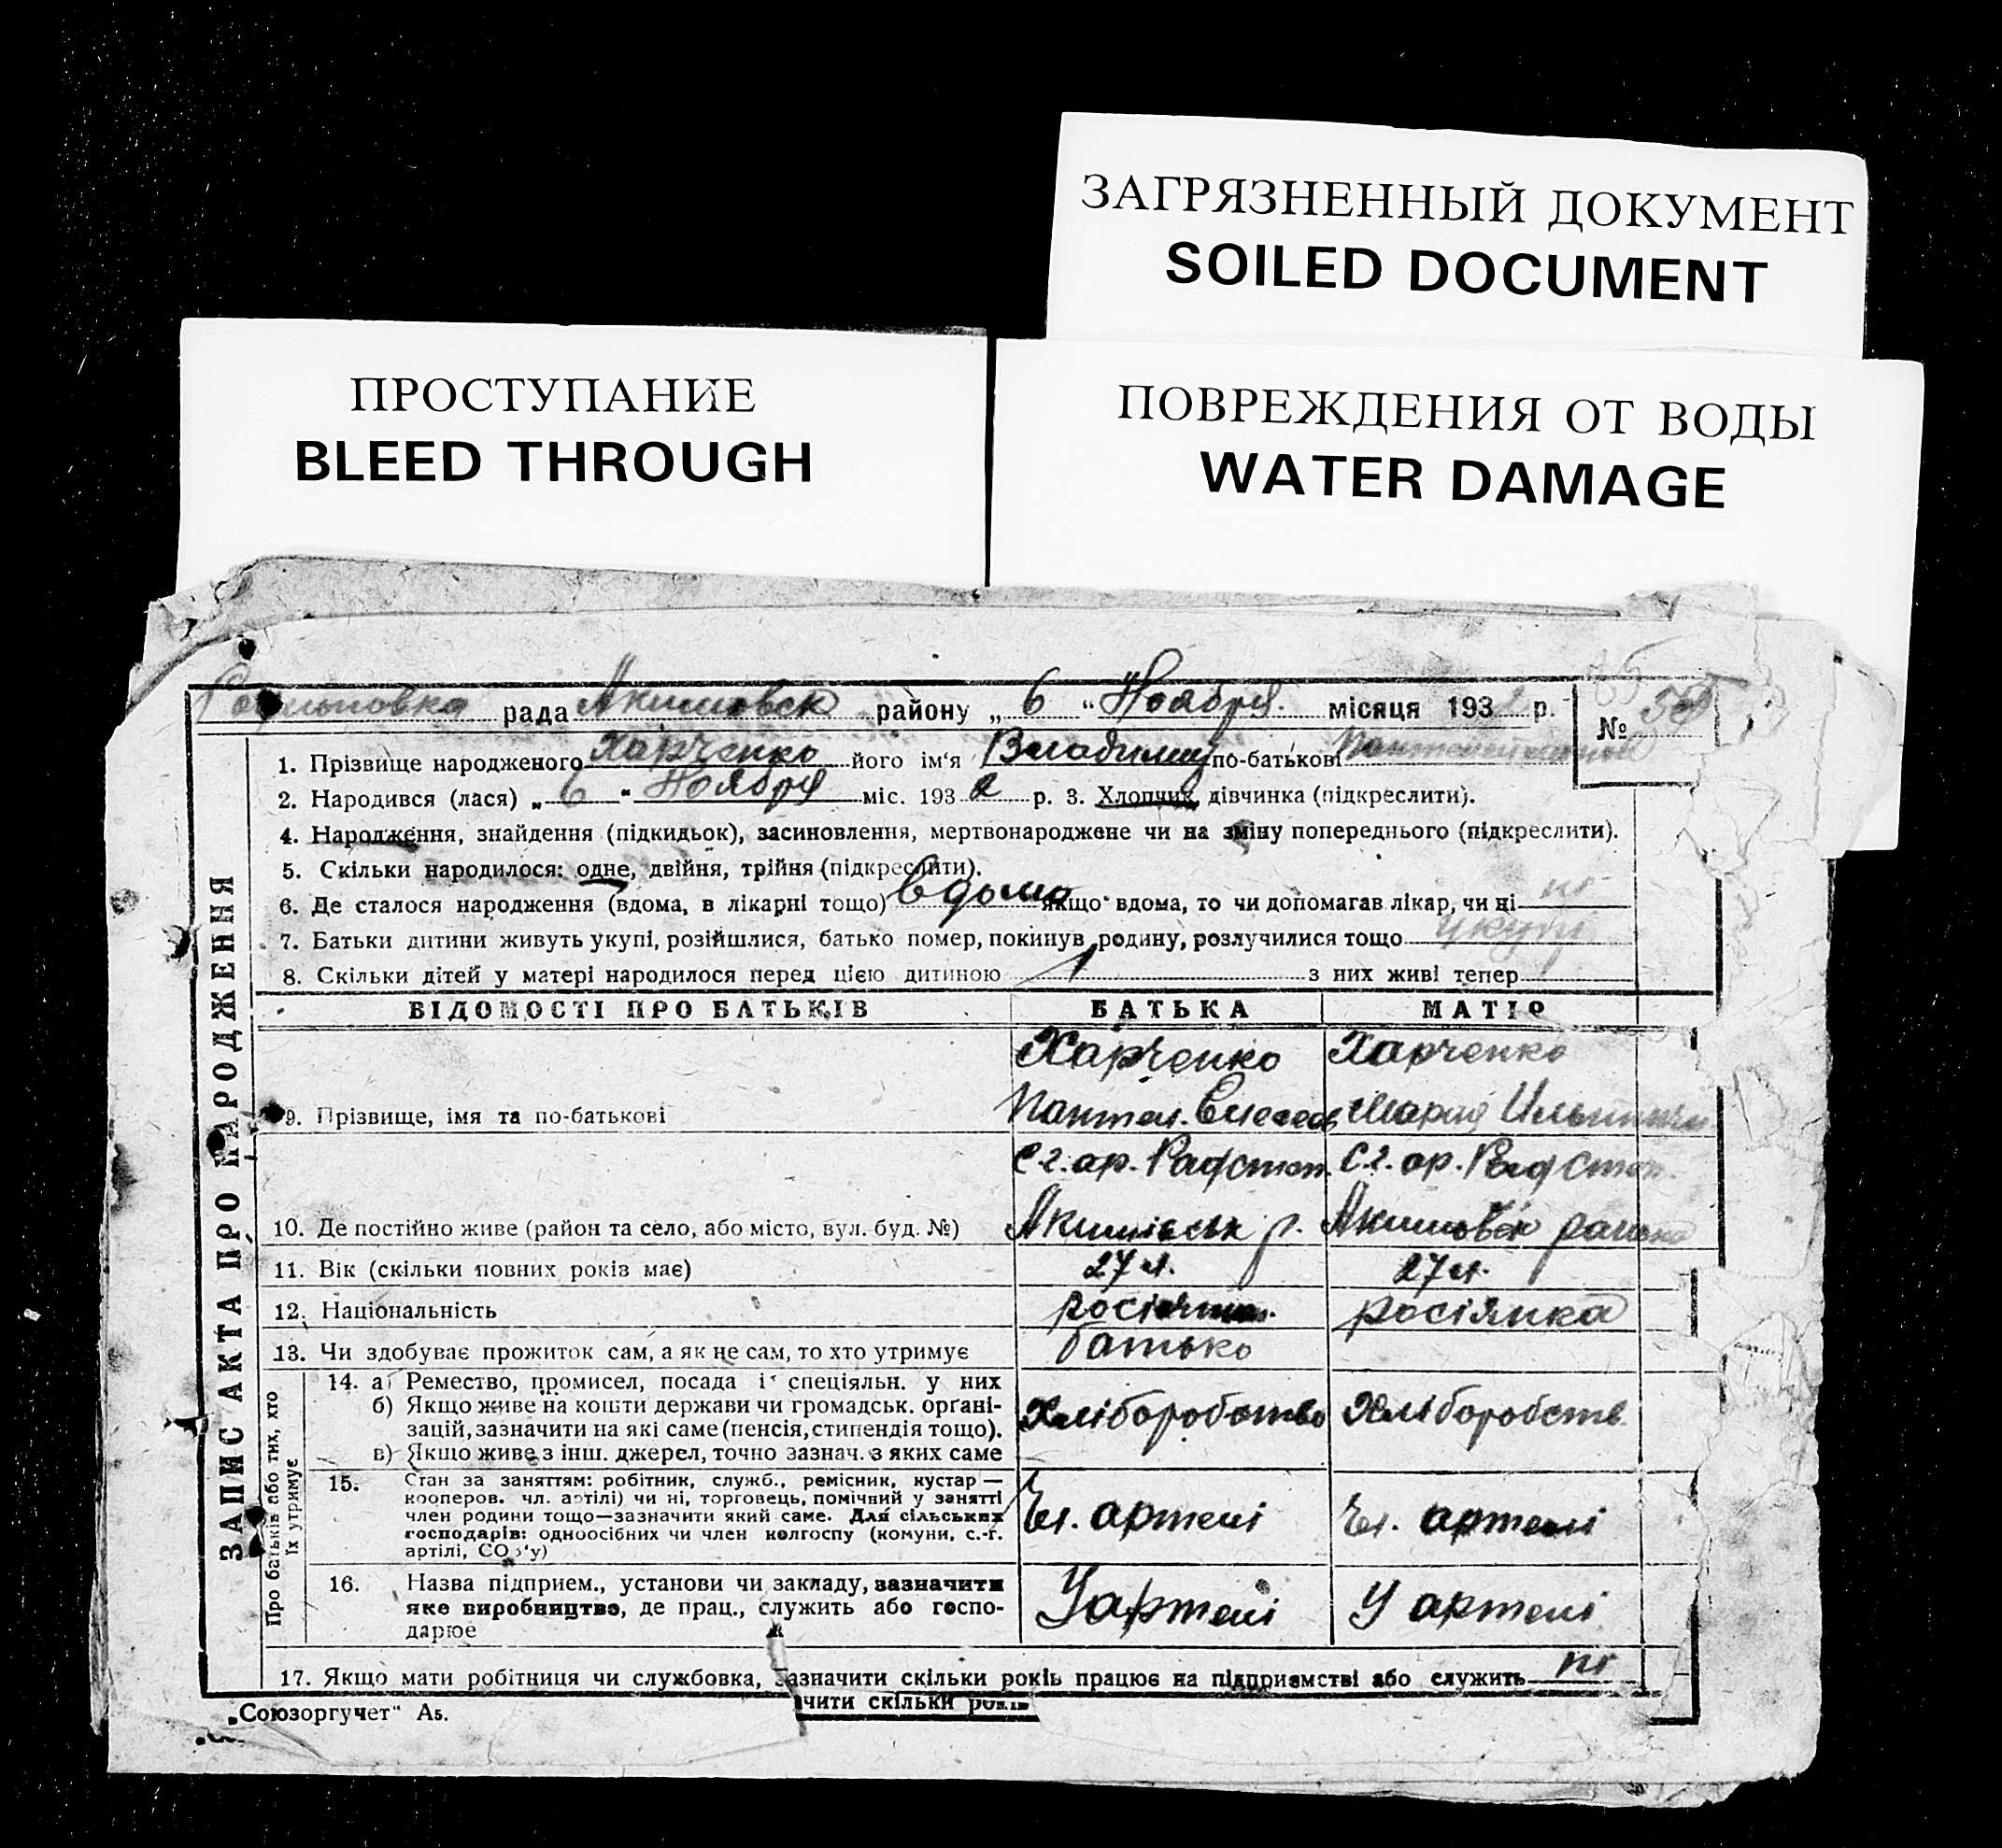 ЗАГРЯЗНЕННЫЙ ДОКУМЕНТ
SOILED DOCUMENT
ПРОСТУПАНИЕ
BLEED THROUGH
ПОВРЕЖДЕНИЯ ОТ ВОДЫ
WATER DAMAGE
рада Акимовск району „ 6 “ Ноября місяця 193 р.
№
1. Прізвище народженого Харченко його ім‘я Владимир по-батькові
2. Народився (лася) „ 6 “ Ноября міс. 193 2 р. 3. Хлопчик, дівчинка (підкреслити).
4. Народження, знайдення (підкидьок), засиновлення, мертвонароджене чи на зміну попереднього (підкреслити).
5. Скільки народилося: одне, двійня, трійня (підкреслити).
6. Де сталося народження (вдома, в лікарні тощо) вдома якщо вдома, то чи допомагав лікар, чи ні ні
7. Батьки дитини живуть укупі, розійшлися, батько помер, покинув родину, розлучилися тощо укупі
8. Скільки дітей у матері народилося перед цією дитиною 1 з них живі тепер
ЗАПИС АКТА ПРО НАРОДЖЕННЯ
ВІДОМОСТІ ПРО БАТЬКІВ БАТЬКА МАТІР
Харченко Харченко
9. Прізвище, імя та по-батькові Пантел. Мария
С.г. ар. С.г. ар.
10. Де постійно живе (район та село, або місто, вул. буд. №) Акимівськ р. Акимовск района
11. Вік (скільки повних років має) 27 л. 27 л.
12. Національність росіянин росіянка
13. Чи здобуває прожиток сам, а як не сам, то хто утримує батько
Про батьків або тих, хто
їх утримує
14. а) Ремество, промисел, посада і спеціяльн. у них
б) Якщо живе на кошти держави чи громадськ. орґані-
зацій, зазначити на які саме (пенсія, стипендія тощо).
в) Якщо живе з інш. джерел, точно зазнач. з яких саме
Хліборобство Хліборобств.
15. Стан за заняттям: робітник, служб., ремісник, кустар —
кооперов. чл. артілі) чи ні, торговець, помічний у занятті
член родини тощо—зазначити який саме. Для сільських
господарів: одноосібних чи член колгоспу (комуни, с.-г.
артілі, СОЗ‘у)
Чл. артелі Чл. артелі
16. Назва підприєм., установи чи закладу, зазначити
яке виробництво, де прац., служить або госпо-
дарює
У артелі У артелі
17. Якщо мати робітниця чи службовка, зазначити скільки років працює на підприємстві або служить ні
чити скільки років
„Союзоргучет“ А5.